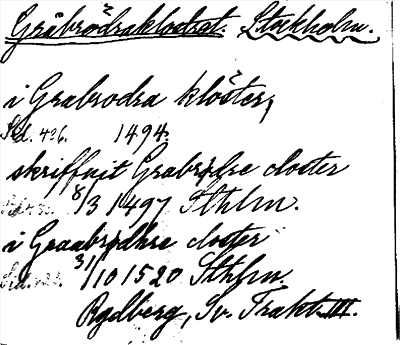 Gråbrödraklostret. Stockholm.
i Grabrodra klöster,
Sid. 426. 1494.
skriffuit Grabrødre closter
8/3 1497 Sthlm.
i Graabrødhre closter
31/10 1520 Sthlm.
Rydberg, Sv. Trakt. III.